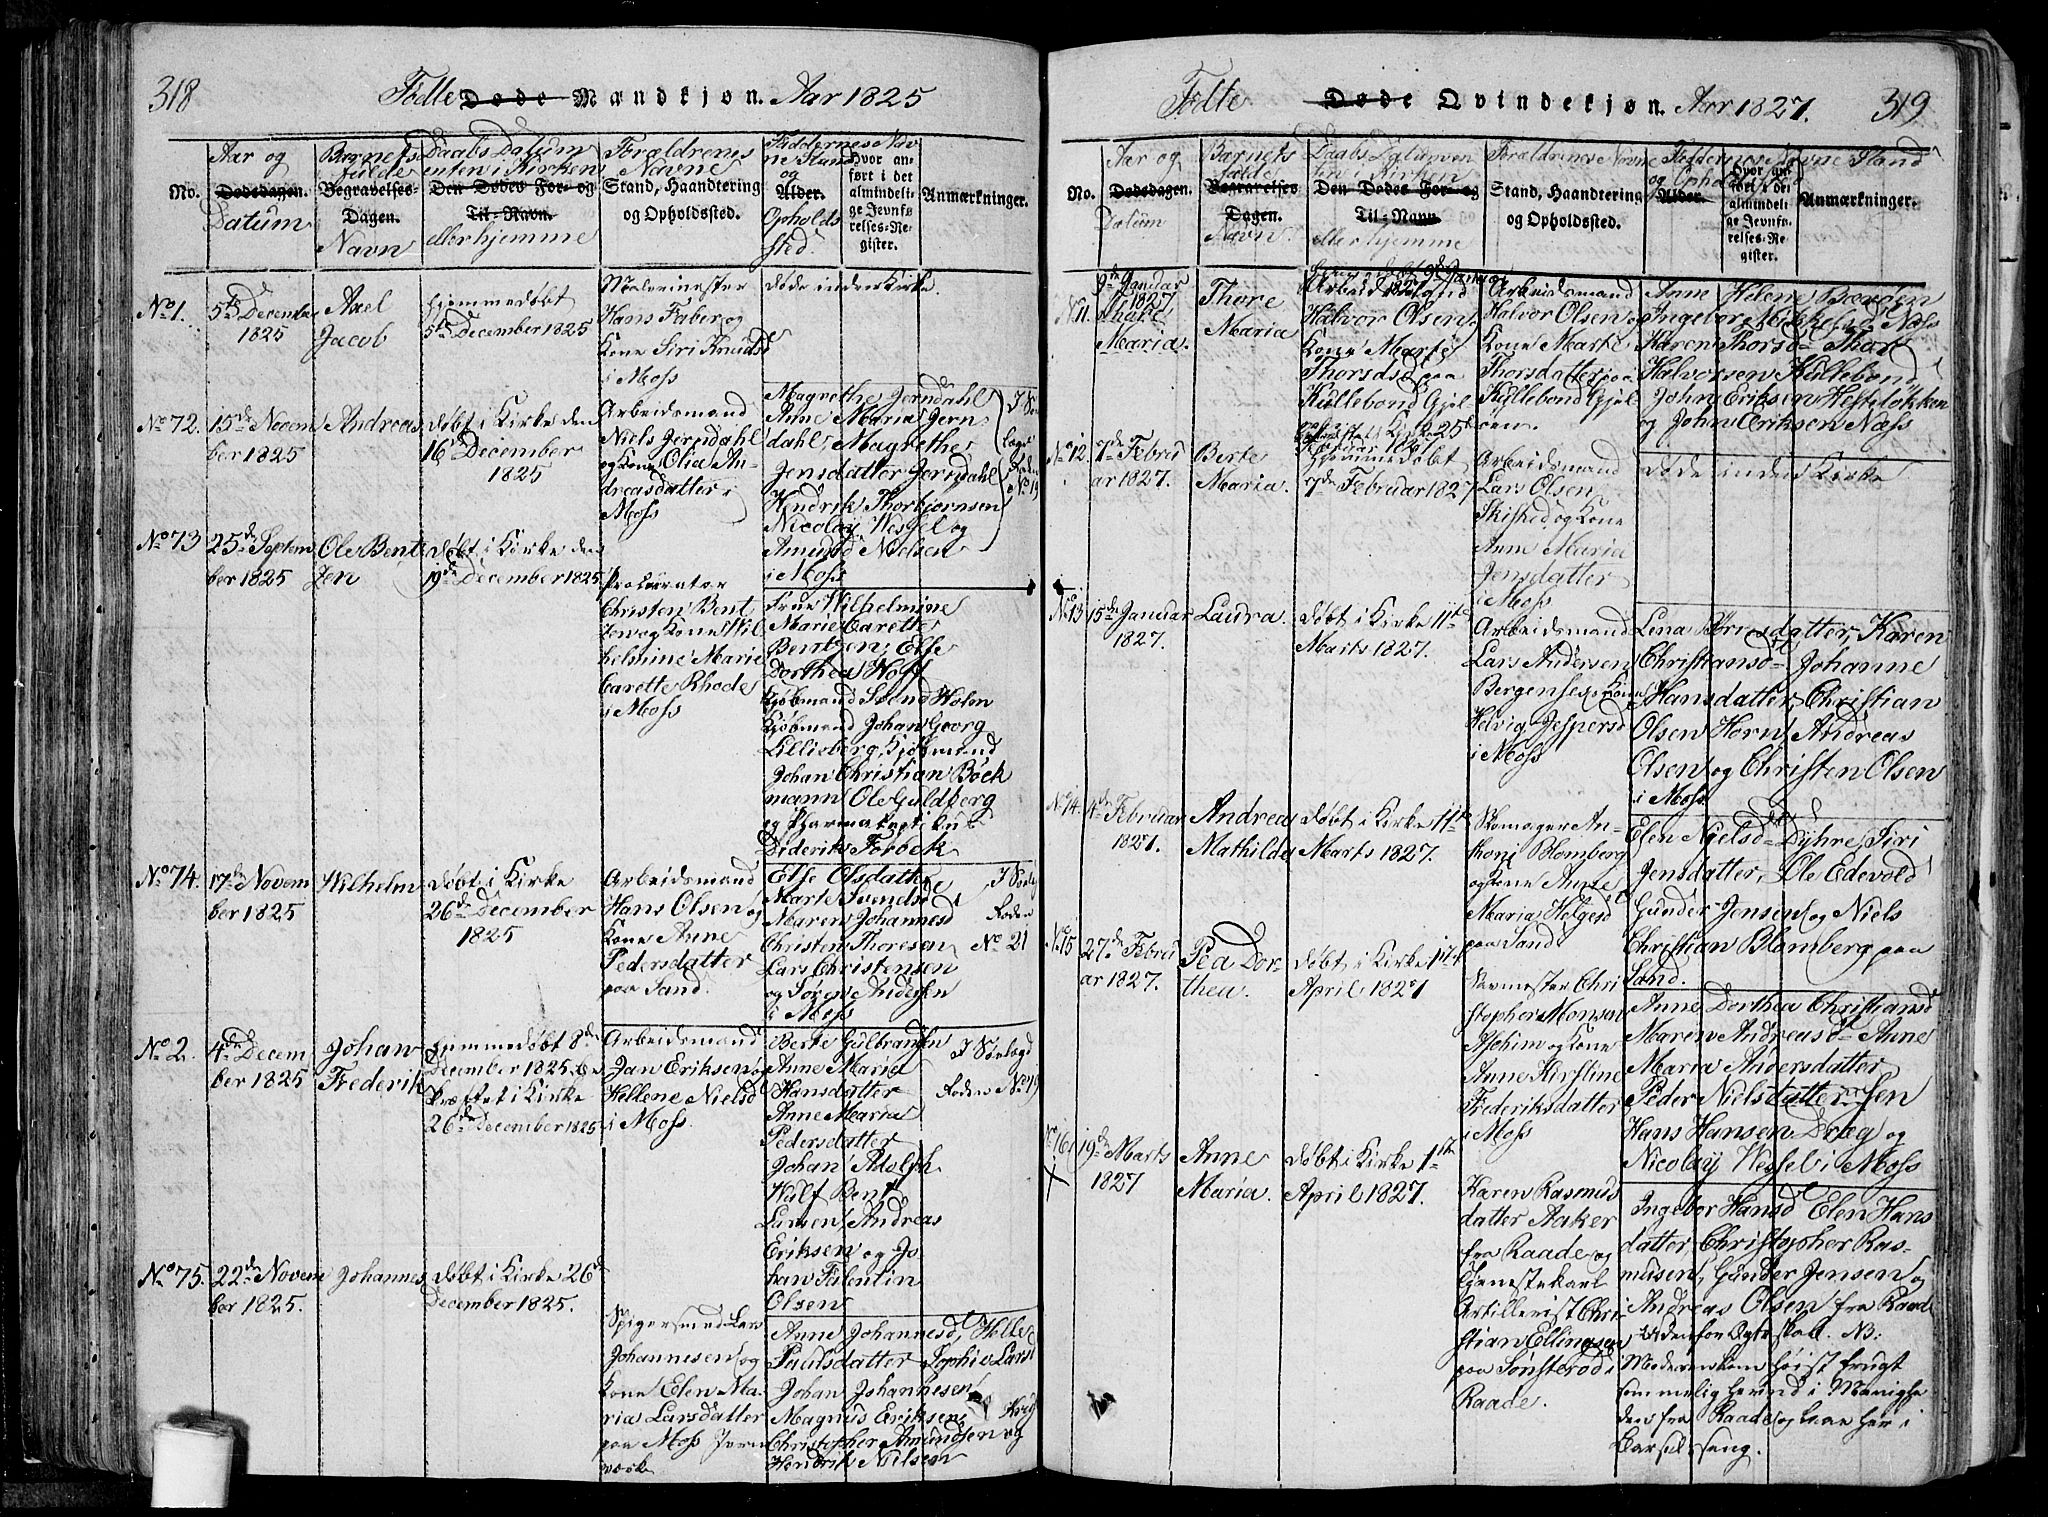 318
Fødte Døde Mandkjøn. Aar 1825
No.
Aar og
Dødsdagen.
Datum
Barnets
fulde
Begravelses-
Dagen.
Navn
Daabs Datum
enten i Kirken
Den Dødes For- og
Til-Navn.
eller hjemme
Forældrenes
Navne
Stand, Haandtering
og Opholdssted.
Faddernes Nav
ne Stand
og
Alder.
Opholds
sted.
Hvor an-
ført i det
almindeli-
ge Jevnfø-
relses-Re-
gister.
Anmærkninger.
No 1.
5te December
1825
Axel
Jacob
hjemmedøbt
5te December 1825
Hans Faber og
Kone Siri Knudsd
i Moss
døde inden Kirke.
No 72.
15de Novem
ber 1825
Andreas
døbt i Kirke den
16de December
1825
Arbeidsmand
Niels Jerndahl
og Kone Olia An-
dreasdatter i
Moss
Magrethe Jerndahl
Anne Maria Jern
dahl, Magrethe
Jensdatter Jerndahl
Hendrik Thorbjørnsen
Nicolay Wessel og
Amund Nielsen
i Moss
No 73
25de Septem
ber 1825
Ole Bent
zen
døbt i Kirke den
19de December 1825
Procurator
Christen Bent
zen og Kone Wil
helmine Marie
Carette Rhode
i Moss
Frue Wilhelmine
Marie Carette
Bentzen, Else
Dorthea Hoff
Kjøbmand Svend Holm
Kjøbmand Johan Georg
Lillieberg, Kjøbmand
Johan Christian Böck
mann Ole Guldberg
Diderik Forbech
No 74.
17de Novem
ber 1825
Wilhelm
døbt i Kirke
26de December
1825
Arbeidsmand
Hans Olsen og
Kone Anne
Pedersdatter
paa Sand.
Else Olsdatter
Marte Svendsd
Maren Johannesd
Christen Thoresen
Lars Christensen
og Søren Andersen
i Moss
Roden
No 21
No 2.
4de Decem
ber 1825
Johan
Frederik
hjemmedøbt 8de
December 1825. be
kræftet i Kirke
26de December 1825
Arbeidsmand
Jan Eriksen og
Hellene Nielsd
i Moss.
Berte Gulbrandsen
Anne Maria
Hansdatter
Anne Maria
Pedersdatter
Johan Adolph
Wulf Bent
Larsen, Andreas
Eriksen og Jo
han Falentin
Olsen
Roden No 19
No 75.
22de Novem
ber 1825.
Johannes
døbt i Kirke 26de
December 1825.
Spigersmed Lars
Johannesen og
Kone Elen Ma-
ria Larsdatter
paa Moss Jern
værk
Anne Johannesd, Helle
Paulsdatter Sophie Larsd
Johan Johannesen
Magnus Eriksen
Christopher Amundsen og
Hendrik Nielsen

Fødte Døde Qvindekjøn. Aar 1827.
319
No.
Aar og
Dødsdagen.
Datum
Barnets
fulde
Begravelses
Dagen.
Navn.
Daabs Datum en
ten i Kirken
Den Dødes For- og
Til-Navn
eller hjemme
Forældrenes Navne
Stand, Haandtering
og Opholdssted.
Faddernes Navne Stand
og Opholdssted
Alder.
Hvor an-
ført i det
almindeli-
ge Jevnfø-
relses-Re-
gister.
Anmærkninger.
No 11.
9de Januar
1827
Thore
Maria.
Thore
Maria
Arbeidsmand
Halvor Olsen
Kone Marte
Thorsdsd paa
Kullebond Gjel
Arbeidsmand
Halvor Olsen og
Kone Marte
Thorsdatter paa
Kullebond Gjel
øen.
Anne Helene Bævøen
Ingebor Mikkelsd Næss
Karen Thorsd Thor
Halvorsen Kullebond,
John Eriksen Hesteløkken
og John Eriksen Næss
No 12.
7de Febru
ar 1827.
Berte
Maria.
hjemmedøbt
7de Februar 1827
Arbeidsmand
Lars Olsen
Skisted og Kone
Anne Maria
Jensdatter
i Moss
døde inden Kirke
No 13
15de Januar
1827.
Laura.
døbt i Kirke 11te
Marts 1827.
Arbeidsmand
Lars Andersen
Bergensen Kone
Helvig Jespersd
i Moss
Christiansd Johanne
Hansdatter, Christian
Olsen Horn, Andreas
Olsen og Christen Olsen
i Moss
No 14.
4de Februar
1827.
Andrea
Mathilde
døbt i Kirke 11te
Marts 1827.
Skomager An-
thoni Blomberg
og Kone Anne
Maria Helgesd
paa Sand
Elen Nielsd Dyhre, Siri
Jensdatter, Ole Edevold
Gunder Jensen og Niels
Christian Blomberg paa
Sand.
No 15
27de Febru
ar 1827.
Pea Dor-
thea.
døbt i Kirke 1ste
April 1827
Christopher Monsen
Aschim og Kone
Anne Kirstine
Frederiksdatter
i Moss
Anne Dorthea Christiansd
Maren Andreasd Anne
Maria Andersdatter
Peder Nielsdatter sen
Hans Hansen Dræg og
Nicolay Wessel i Moss
No 16
X
19de Marts
1827
Anne
Maria.
døbt i Kirke 1ste
April 1827.
Karen Rasmus
datter Aaker
fra Raade og
tjenestekarl
Artillerist Chri
stian Ellingsen
paa Sønsterød i
Raade.
Ingebor Hansd Elen Hans
datter, Christopher Ras-
musen, Gunder Jensen og
Andreas Olsen fra Raade
udenfor Ægteskab. NB:
Moderen kom høist frugt
sommelig herind i Menighe
den fra Raade og laae her i
Barselseng.